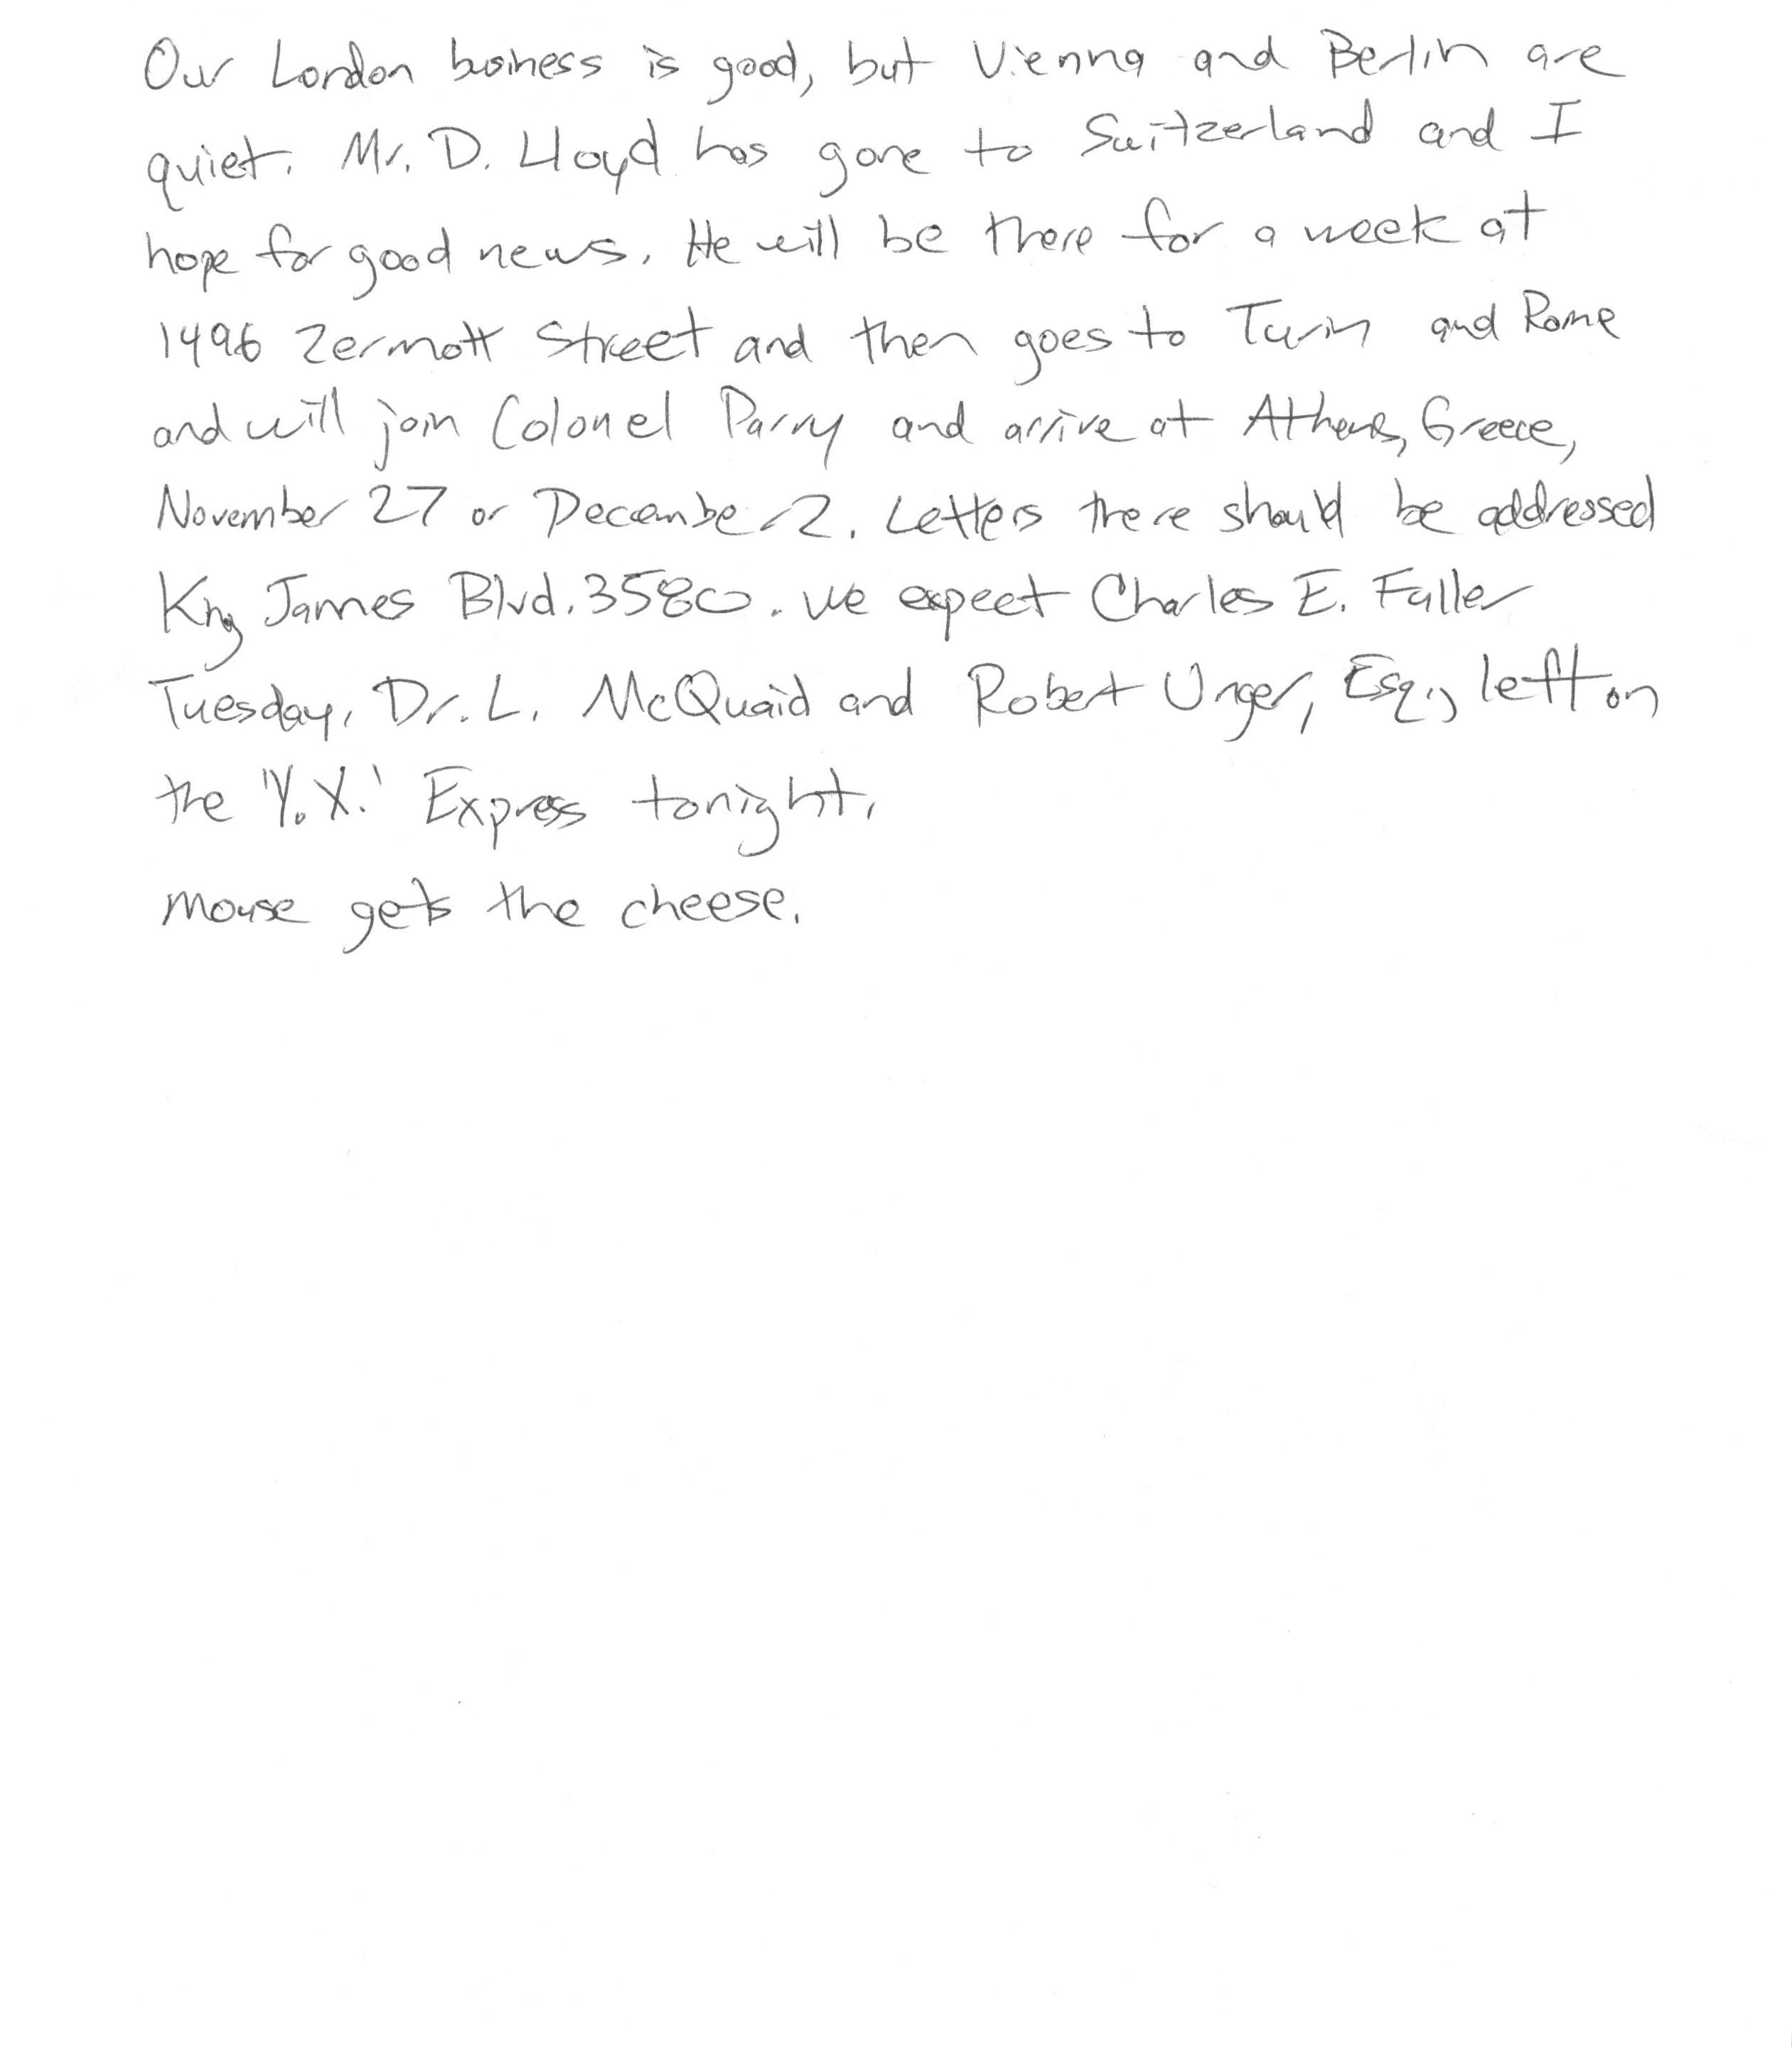 Our London business is good, but Vienna and Berlin are
quiet. Mr. D. Lloyd has gone to Switzerland and I
hope for good news. He will be there for a week at
1496 Zermott Street and then goes to Turin and Rome
and will join Colonel Parry and arrive at Athens, Greece,
November 27 or December 2. Letters there should be addressed
King James Blvd. 3580. We expect Charles E. Fuller
Tuesday. Dr. L. McQuaid and Robert Unger, Esq., left on
the 'Y.X.' Express tonight.
Mouse gets the cheese.